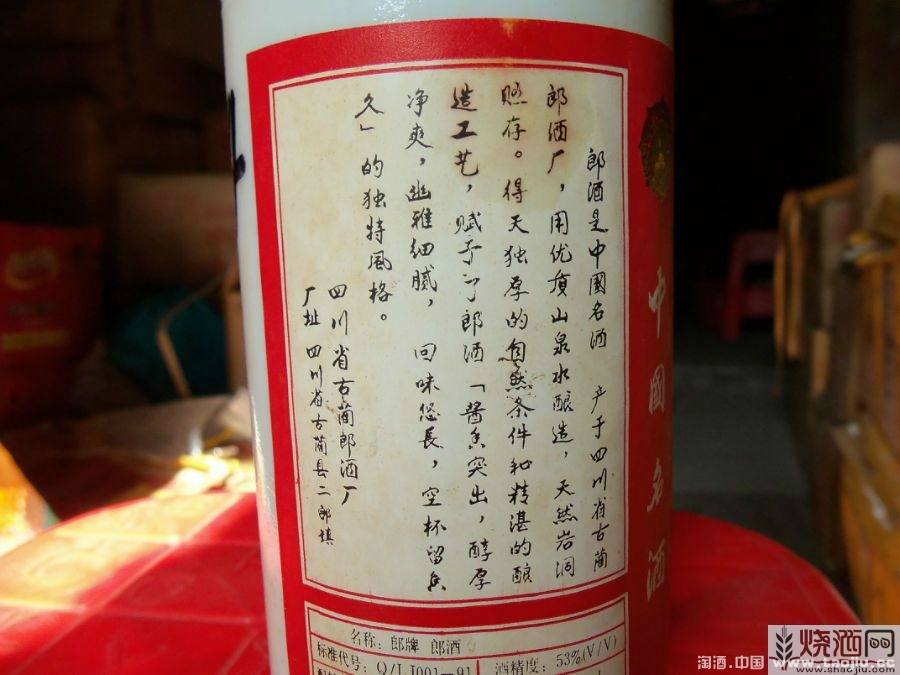 郎酒是中國名酒 产于四川省古蔺
郎酒厂，用优质山泉水酿造，天然岩洞
贮存。得天独厚的自然条件和精湛的酿
造工艺，赋予了郎酒「酱香突出，醇厚
净爽，幽雅细腻，回味悠長，空杯留香
久」的独特風格。
四川省古蔺郎酒厂
厂址 四川省古蔺县二郎镇
中國名酒
名称：郎牌 郎酒
标准代号：Q/LJ001-91
酒精度：53%(V/V)
烧酒网
www.shaojiu.com
淘酒.中国 www.taojiu.cc